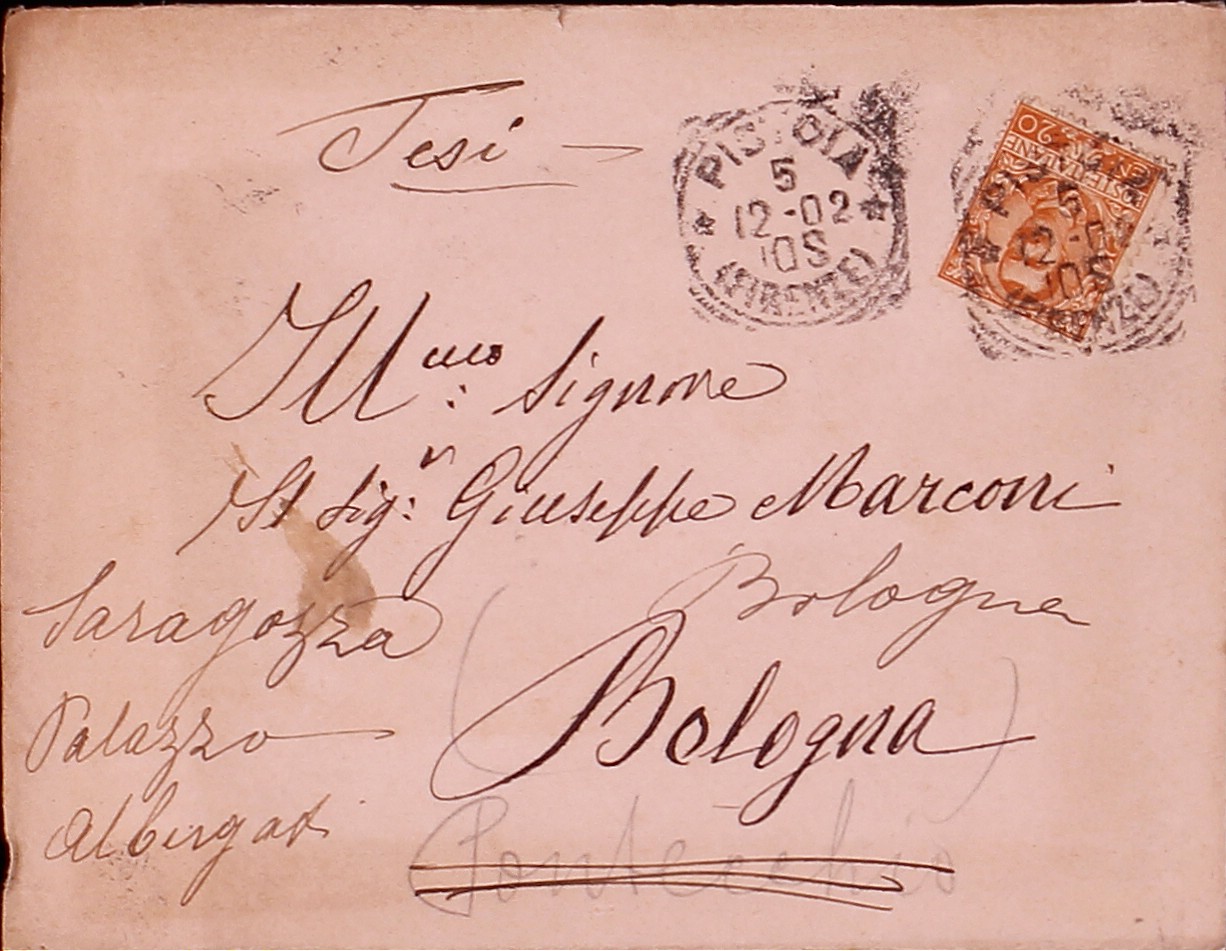 Tesi —
PISTOIA
5
12-02
10S
(FIRENZE)
POSTE ITALIANE
20
5
12-
10S
Ill.mo Signore
Il Sig.r Giuseppe Marconi
Bologna
Saragozza
(Bologna)
Palazzo
Albergati
Pontecchio